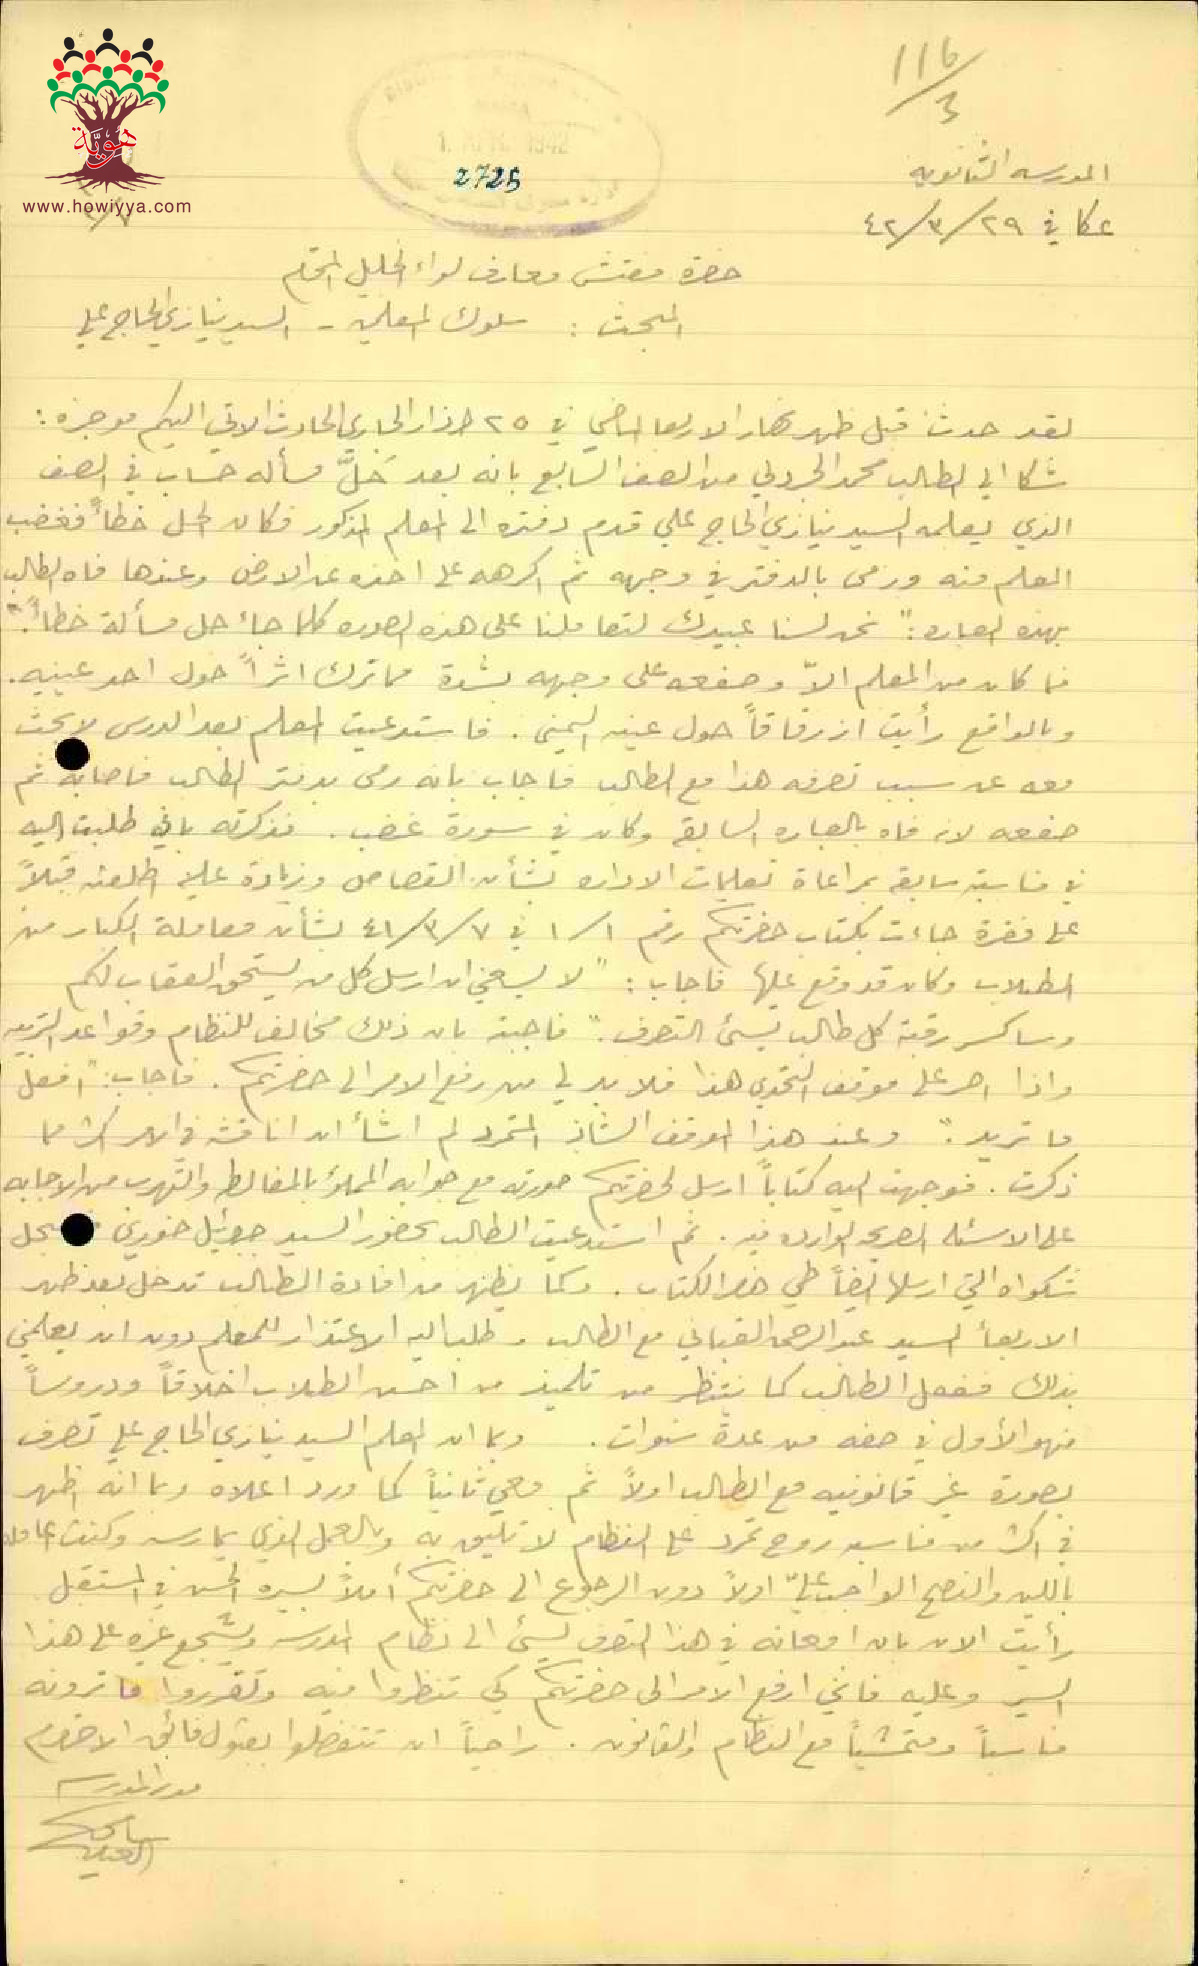 ١١٦/٣
هوية
www.howiyya.com
1942
2725
المدرسه الثانويه
عكا في ٢٩/٣/٤٢
حضرة مفتش معارف لواء الجليل المحترم
المبحث : سلوك المعلمين – السيد نيازي الحاج علي
لقد حدث قبل ظهر نهار الاربعا الماضي في ٢٥ اذار الجاري الحادث الاتي اليكم موجزه :
شكا الي الطالب محمد الجردلي من الصف السابع بانه بعد حَلَّ مسأله حساب في الصف
الذي يعلمه السيد نيازي الحاج علي قدم دفتره الى المعلم المذكور فكان الحل خطأً فغضب
المعلم منه ورمى بالدفتر في وجهه ثم اكرهه على اخذه عن الارض وعندها فاه الطالب
بهذه العباره : " نحن لسنا عبيدك لتعاملنا على هذه الصوره كلما جاء حل مسألة خطأً ."
فما كان من المعلم الاّ وصفعه على وجهه بشدة مما ترك اثراً حول احد عينيه .
وبالواقع رأيت ازرقاقاً حول عينه اليمنى . فاستدعيت المعلم بعد الدرس لابحث
معه عن سبب تصرفه هذا مع الطالب فاجاب بانه رمى بدفتر الطالب فاصابه ثم
صفعه لانه فاه بالعباره السابقه وكان في سورة غضب . فذكرته باني طلبت اليه
في مناسبة سابقه بمراعاة تعليمات الاداره بشأن القصاص وزيادة عليه اطلعته قبلاً
على فقرة جاءت بكتاب حضرتكم رقم ١/١ في ٧/٣/٤١ بشأن معاملة الكبار من
الطلاب وكان قد وقع عليها فاجاب : " لا يسعني ان ارسل كل من يستحق العقاب لكم
وساكسر رقبة كل طالب يسئ التصرف ." فاجبته بان ذلك مخالف للنظام وقواعد التربيه
واذا اصر على موقف التحدي هذا فلا بد لي من رفع الامر الى حضرتكم . فاجاب : " افعل
ما تريد ." وعند هذا الموقف الشاذ المتمرد لم اشأ ان اناقشه في الامر اكثر مما
ذكرت . فوجهت اليه كتاباً ارسل لحضرتكم صورته مع جوابه المملؤ بالمغالطه والتهرب من الاجابه
على الاسئله الصريحه الوارده فيه . ثم استدعيت الطالب بحضور السيد جبرائيل خوري
شكواه التي ارسلها ايضاً طي هذا الكتاب . وكما يظهر من افادة الطالب تدخل بعد ظهر
الاربعا السيد عبد الرحمن القباني مع الطالب وطلب اليه الاعتذار للمعلم دون ان يعلمني
بذلك ففعل الطالب كما ينتظر من تلميذ من احسن الطلاب اخلاقاً ودروساً
فهو الأول في صفه من عدة سنوات . وبما ان المعلم السيد نيازي الحاج علي تصرف
بصورة غير قانونيه مع الطالب اولاً ثم معي ثانياً كما ورد اعلاه وبما انه اظهر
في اكثر من مناسبه روح تمرد على النظام لا تليق به وبالعمل الذي يمارسه وكنت اعامله
باللين والنصح الواجب عليّ اولاً دون الرجوع الى حضرتكم أملاً بسيره الحسن في المستقبل
رأيت الان بان امعانه في هذا التصرف يسئ الى نظام المدرسه ويشجع غيره على هذا
السير وعليه فانني ارفع الامر الى حضرتكم كي تنظروا فيه وتقرروا ما ترونه
مناسباً ومتمشياً مع النظام والقانون . راجياً ان تتفضلوا بقبول فائق الاحترام
مدير المدرسه